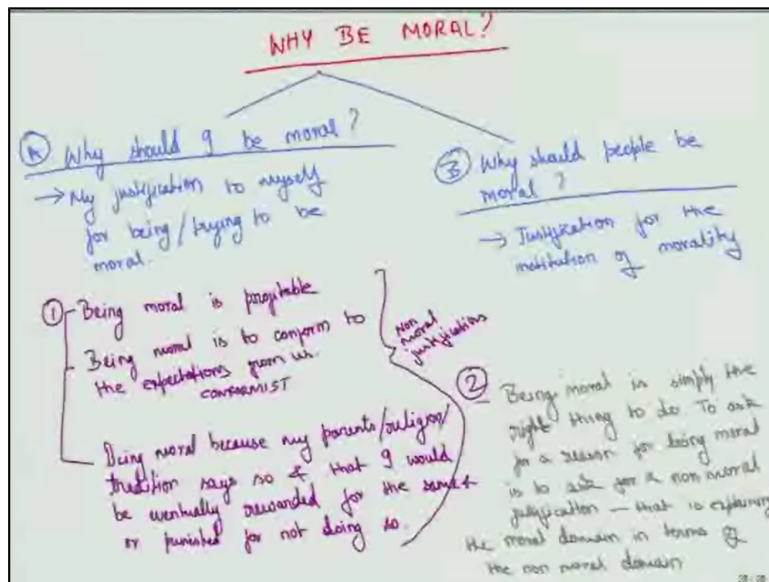 WHY BE MORAL?
A Why should I be moral?
→ My justification to myself
for being/trying to be
moral.
B Why should people be
moral?
→ Justification for the
institution of morality
1 Being moral is profitable
- Being moral is to conform to
the expectations from us.
CONFORMIST
Being moral because my parents/religion/
tradition says so & that I would
be eventually rewarded for the same
or punished for not doing so.
Non
moral
justifications
2 Being moral is simply the
right thing to do. To ask
for a reason for being moral
is to ask for a non moral
justification — that is explaining
the moral domain in terms of
the non moral domain